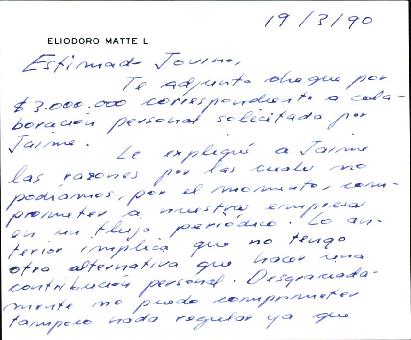 19/3/90
ELIODORO MATTE L
Estimado Jovino,
Te adjunto cheque por
$ 3.000.000 correspondiente a cola-
boración personal solicitada por
Jaime.
Le expliqué a Jaime
las razones por las cuales no
podíamos, por el momento, com-
prometer a nuestras empresas
en un flujo periódico. Lo an-
terior implica que no tengo
otra alternativa que hacer una
contribución personal. Desgraciada-
mente no puedo comprometer
tampoco nada regular ya que